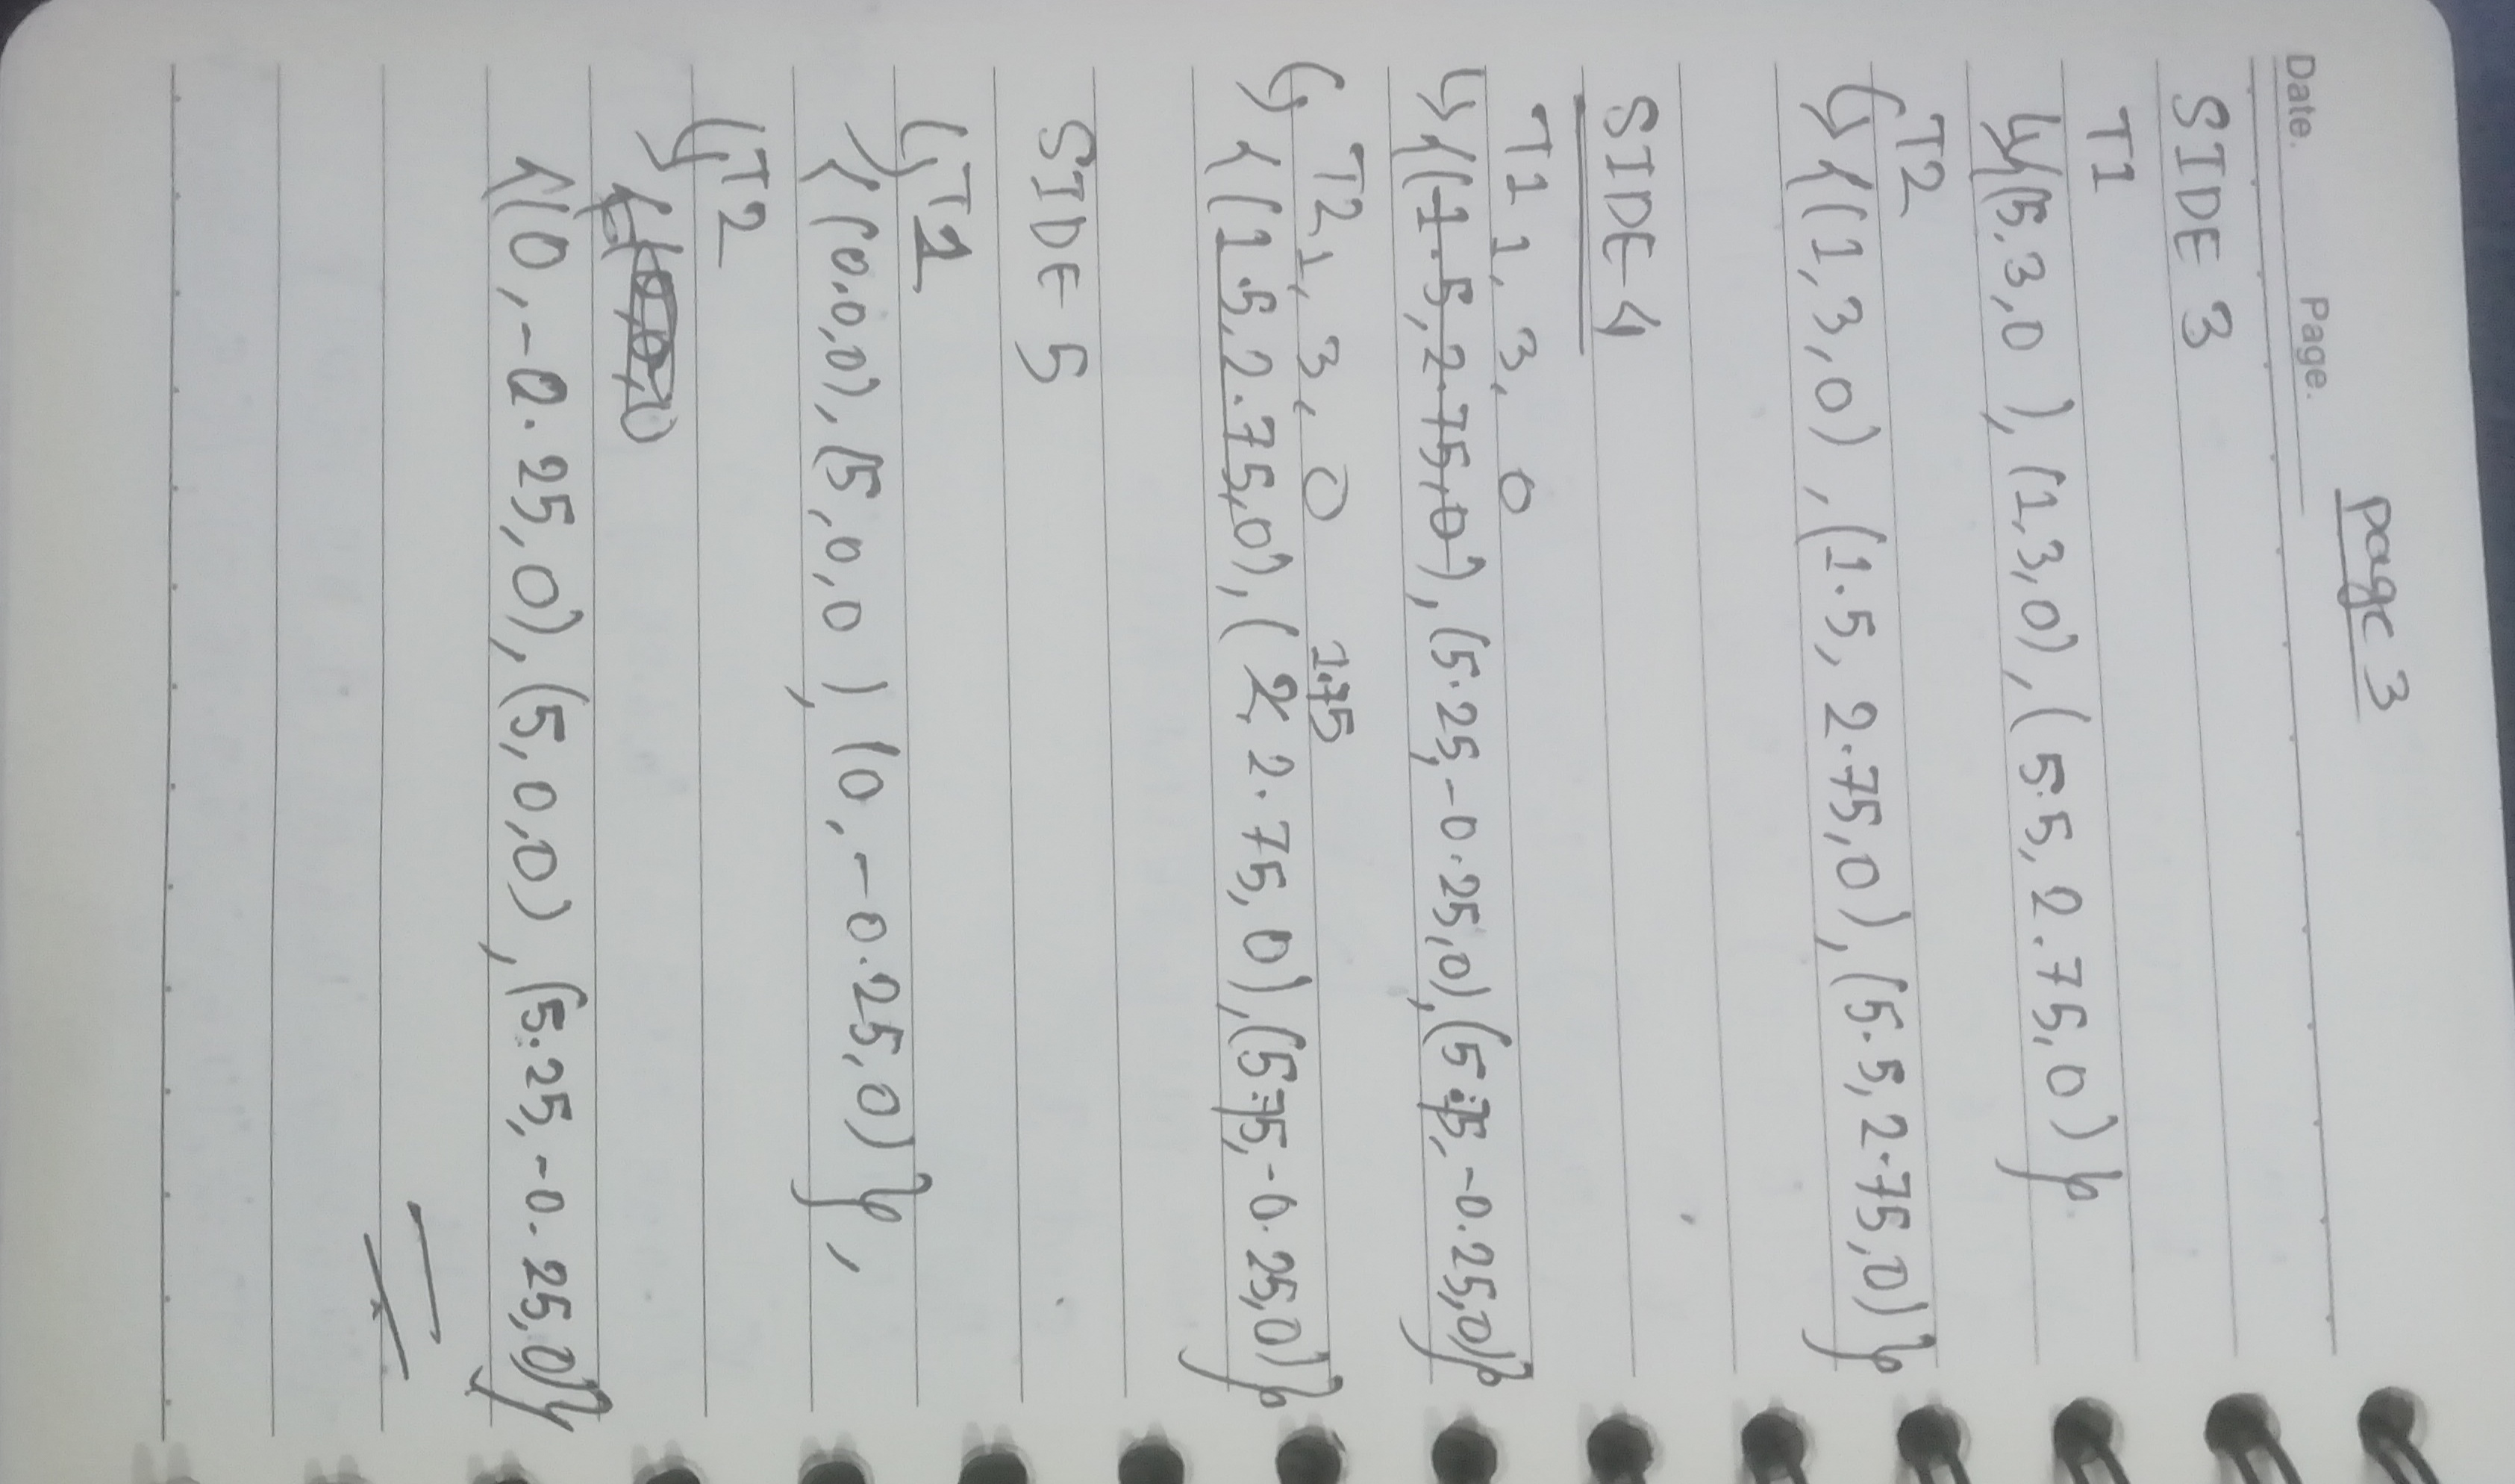 page 3
Date. Page.
SIDE 3
T1
{(5,3,0), (1,3,0), (5.5, 2.75,0)}
T2
{(1,3,0), (1.5, 2.75,0), (5.5, 2.75,0)}
SIDE-4
T1 1, 3, 0
{(1.5, 2.75,0), (5.25,-0.25,0), (5.75,-0.25,0)}
T2 1, 3, 0 1.75
{(1.5,2.75,0), (2, 2.75, 0), (5.75,-0.25,0)}
SIDE-5
T1
{(0,0,0), (5,0,0), (0,-0.25,0)},
T2
{(0,-0.25,0), (5,0,0), (5.25,-0.25,0)}